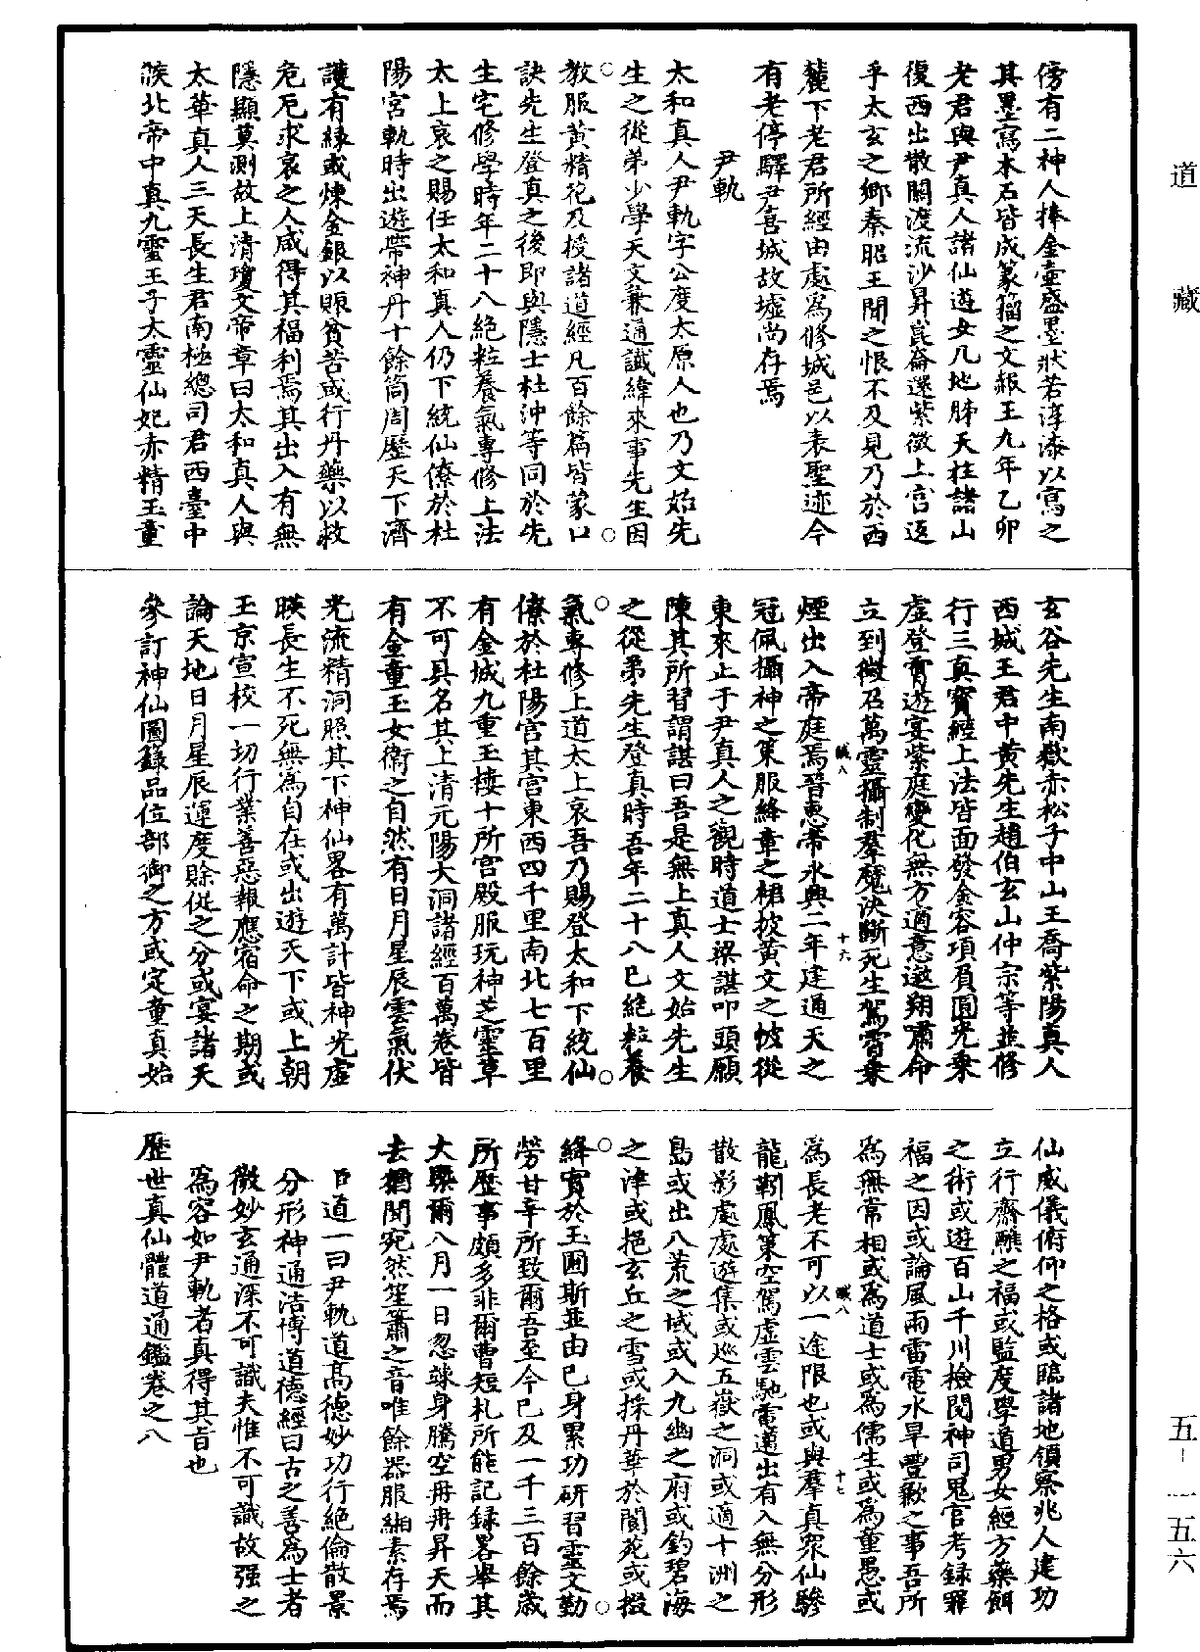 道藏
傍有二神人捧金壺盛墨狀若淳漆以寫之
其墨寫木石皆成篆籀之文赧王九年乙卯
老君與尹真人諸仙遊女几地肺天柱諸山
復西出散關渡流沙昇崑崙還紫微上宮迄
乎太玄之鄉秦昭王聞之恨不及見乃於西
麓下老君所經由處爲修城邑以表聖迹今
有老停驛尹喜城故墟尚存焉
尹軌
太和真人尹軌字公度太原人也乃文始先
生之從弟少學天文兼通讖緯來事先生因
教服黃精花及授諸道經凡百餘篇皆蒙口
訣先生登真之後即與隱士杜沖等同於先
生宅修學時年二十八絕粒養氣專修上法
太上哀之賜任太和真人仍下統仙僚於杜
陽宮軌時出遊帶神丹十餘筒周歷天下濟
護有緣或煉金銀以賑貧苦或行丹藥以救
危厄求哀之人咸得其福利焉其出入有無
隱顯莫測故上清瓊文帝章曰太和真人與
太華真人三天長生君南極總司君西臺中
候北帝中真九靈王子太靈仙妃赤精玉童
玄谷先生南嶽赤松子中山王喬紫陽真人
西城王君中黃先生趙伯玄山仲宗等並修
行三真寶經上法皆面發金容項負圓光乘
虛登霄遊宴紫庭變化無方適意遨翔嘯命
立到徵召萬靈攝制羣魔決斷死生駕霄乘
煙出入帝庭焉晉惠帝永興二年建通天之
冠佩攝神之策服絳章之裙披黃文之帔從
東來止于尹真人之觀時道士梁諶叩頭願
陳其所習謂諶曰吾是無上真人文始先生
之從弟先生登真時吾年二十八已絕粒養
氣專修上道太上哀吾乃賜登太和下統仙
僚於杜陽宮其宮東西四千里南北七百里
有金城九重玉樓十所宮殿服玩神芝靈草
不可具名其上清元陽大洞諸經百萬卷皆
有金童玉女衛之自然有日月星辰雲氣伏
光流精洞照其下神仙畧有萬計皆神光虛
映長生不死無爲自在或出遊天下或上朝
玉京宣校一切行業善惡報應宿命之期或
論天地日月星辰運度賒促之分或宴諸天
參訂神仙圖錄品位部御之方或定童真始
仙威儀俯仰之格或臨諸地領察兆人建功
立行齋醮之福或監度學道男女經方藥餌
之術或遊百山千川檢閱神司鬼官考錄罪
福之因或論風雨雷電水旱豐歉之事吾所
爲無常相或爲道士或爲儒生或爲童愚或
爲長老不可以一途限也或與羣真眾仙驂
龍靷鳳策空駕虛雲馳電邁出有入無分形
散影處處遊集或巡五嶽之洞或適十洲之
島或出八荒之域或入九幽之府或釣碧海
之津或挹玄丘之雪或採丹華於閬苑或掇
絳實於玉圃斯並由已身累功研習靈文勤
勞甘辛所致爾吾至今已及一千三百餘歲
所歷事頗多非爾曹短札所能記錄畧舉其
大槩爾八月一日忽竦身騰空冉冉昇天而
去猶聞宛然笙簫之音唯餘器服緗素存焉
臣道一曰尹軌道高德妙功行絕倫散景
分形神通浩博道德經曰古之善爲士者
微妙玄通深不可識夫惟不可識故强之
爲容如尹軌者真得其旨也
歷世真仙體道通鑑卷之八
五-一五六